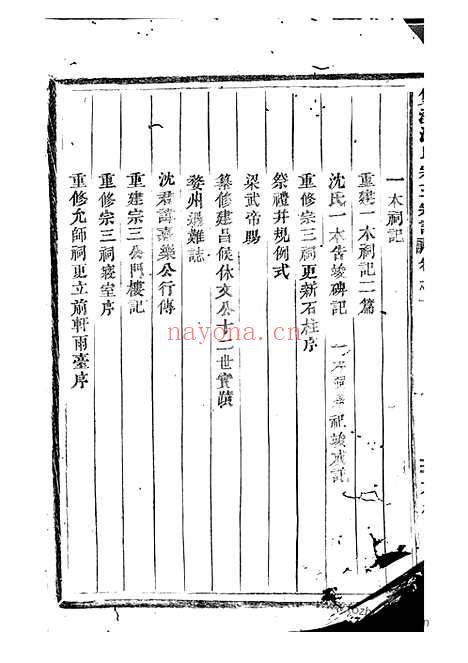 一本祠記
重建一本祠記二篇
沈氏一本告竣碑記　一本祠祀竣成記
重修宗三祠更新石柱序
祭禮并規例式
梁武帝賜
纂修建昌候休文公十二世實蹟
婺州遇難誌
沈君諱嘉樂公行傳
重建宗三公門樓記
重修宗三祠寢室序
重修允師祠更立前軒雨臺序
nayona.cn